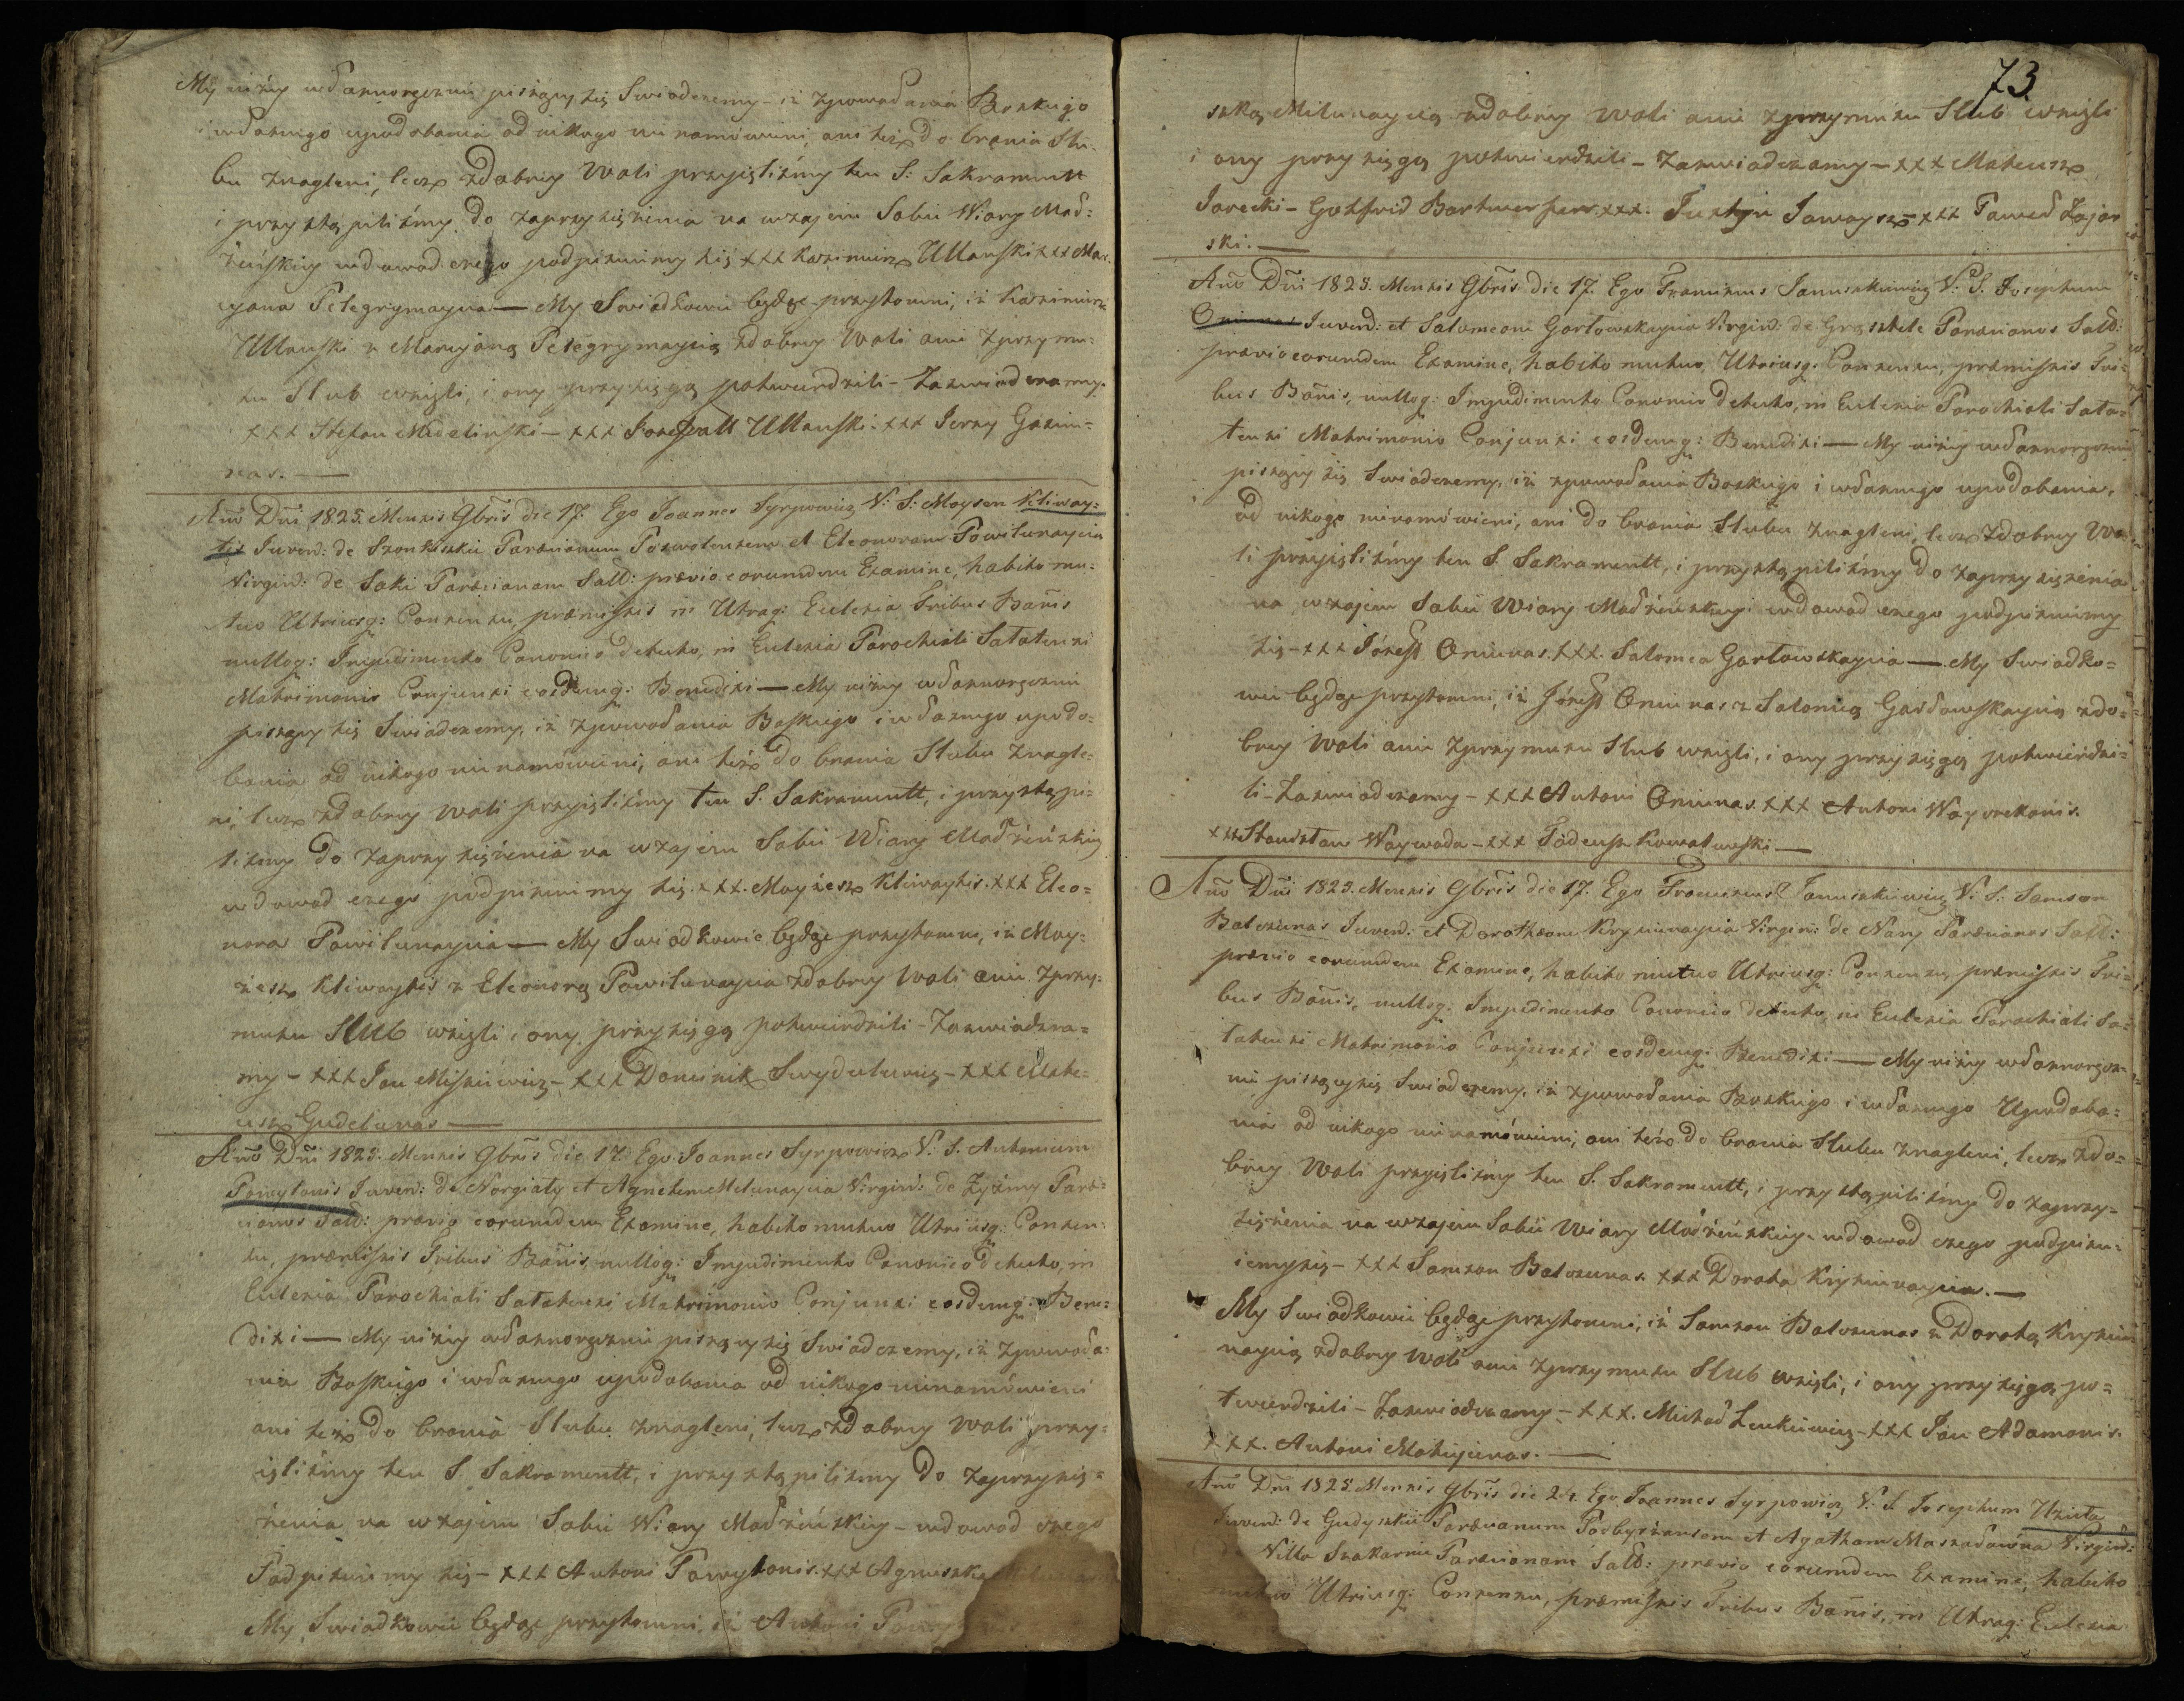 My niżey własnoręcznie piszący się Swiadczemy – iż zpowodania Boskiego
i własnego upodobania od nikogo nie namówieni, ani też do brania Slu-
bu znagleni, lecz zdobrey Woli przyieliśmy ten S: Sakramentt
i przystąpiliśmy do zaprzysiężenia na wzajem Sobie Wiary Mał:
żeńskiey wdowod czego podpisuiemy się xxx Kazimierz Ullanski xxx Mar-
cyana Pelegrymaycia — My Swiadkowie będąc przytomni, iż Kazimierz
Ullanski z Marcyaną Pelegrymaycią zdobrey Woli ani zprzymu:
su Slub wzieli, i ony przysięgą potwierdzili – Zaswiadczamy.
xxx Stefan Medeliński – xxx Ullanski – xxx Jerzy
nas. —
Año Dñi 1825. Mensis 9bris die 17. Ego Joannes Syrpowicz V: S: Moysen Kliway:
tis Juven: de Szonkiszkie Parœcianum Poswolensem et Eleonoram Powilunaycia
Virgin: de Saki Parœcianam Sałł: prævio eorumdem Examine, habito mu-
tuo Utriusq: Consensu, præmissis in Utraq: Eclesia Tribus Bañis
nulloq: Impedimento Canonico detecto, in Eclesia Parochiali Satatensi
Matrimonio Conjunxi eosdemq: Benedixi — My niżey własnoręcznie
piszący się Swiadczemy, iż zpowodania Boskiego i własnego upodo-
bania od nikogo nie namówieni, ani też do brania Slubu znagle-
ni, lecz zdobrey Woli przyieliśmy ten S. Sakramentt, i przystąpi-
liśmy do zaprzysiężenia na wzajem Sobie Wiary Małżeńskiey
wdowod czego podpisuiemy się. xxx. Moyżesz Kliwaytis. xxx Eleo=
nora Powilunaycia — My Swiadkowie będąc przytomni, iż Moy-
żesz Kliwaytis z Eleonorą Powilunaycia zdobrey Woli ani zprzy-
musu Slub wzieli i ony przysięgą potwierdzili – Zaswiadcza=
my – xxx Jan Miskiewicz – xxx Dominik – xxx Mate=
usz Gudelunas —
Año Dñi 1825. Mensis 9bris die 17. Ego Joannes Syrpowicz V: S. Antonium
Powylonis Juven: de Norgiały et Agnetem Milunaycia Virgin: de Żyżmy Parœ-
cianos Sałł: prævio eorumdem Examine, habito mutuo Utriusq: Consen-
su, præmissis Tribus Bañis, nulloq: Impedimento Canonico detecto, in
Eclesia Parochiali Satatensi Matrimonio Conjunxi eosdemq: Bene:
dixi — My niżey własnoręcznie piszący się Swiadczemy, iż zpowoda-
nia Boskiego i własnego upodobania od nikogo nienamówieni
ani też do brania Slubu znagleni, lecz zdobrey Woli przy-
ieliśmy ten S. Sakramentt, i przystąpiliśmy do zaprzysię=
żenia na wzajem Sobie Wiary Małżeńskiey – wdowod czego
Podpisuiemy się – xxx Antoni Powylonis. xxx Agnieszka
My Swiadkowie będąc przytomni, iż Antoni
73
szką Milunaycią zdobrey Woli ani zprzymusu Slub wzieli
i ony przysięgą potwierdzili – Zaswiadczamy – xxx Mateusz
Jarecki – Gotfrid xxx. Justyn xxx Paweł Zajan
ski. —
Año Dñi 1825. Mensis 9bris die 17. Ego Franciscus Januszkiewicz V: S. Josephum
Oniunas Juven: et Salomeam Garłowskaycia Virgin: de Parœcianos Sałł:
prævio eorumdem Examine, habito mutuo Utriusq: Consensu, præmissis Tri-
bus Bañis, nulloq: Impedimento Canonico detecto, in Eclesia Parochiali Sata=
tensi Matrimonio Conjunxi eosdemq: Benedixi — My niżey własnoręcznie
piszący się Swiadczemy, iż zpowodania Boskiego i własnego upodobania,
od nikogo nienamówieni, ani do brania Slubu znagleni, lecz zdobrey Wo-
li przyieliśmy ten S. Sakramentt, i przystąpiliśmy do zaprzysiężenia
na wzajem Sobie Wiary Małżeńskiey wdowod czego podpisuiemy
się – xxx Józeff Oniunas. xxx. Salomea Garłowskaycia — My Swiadko=
wie będąc przytomni, iż Józeff Oniunas z Salomeą Garłowskaycią zdo=
brey Woli ani zprzymusu Slub wzieli, i ony przysięgą potwierdzi=
li – Zaswiadczamy – xxx Antoni Oniunas. xxx Antoni
xxx Stanisław Woywoda – xxx Tadeusz Kowalewski —
Año Dñi 1825. Mensis 9bris die 17. Ego Franciscus Januszkiewicz V: S: Samson
Balczunas Juven: et Dorotheam Virgin: de Nary Parœcianos Sałł:
prævio eorumdem Examine, habito mutuo Utriusq: Consensu, præmissis Tri=
bus Bañis, nulloq: Impedimento Canonico detecto, in Eclesia Parochiali Sa=
tatensi Matrimonio Conjunxi eosdemq: Benedixi — My niżey własnoręcz-
nie piszący się Swiadczemy, iż zpowodania Boskiego i własnego Upodoba=
nia od nikogo nienamówieni, ani też do brania Slubu znagleni, lecz zdo=
brey Woli przyieliśmy ten S. Sakramentt, i przystąpiliśmy do zaprzy=
siężenia na wzajem Sobie Wiary Małżeńskiey – wdowod czego podpisu=
iemy się – xxx Samson Balczunas. xxx Dorota —
My Swiadkowie będąc przytomni, iż Samson Balczunas z Dorotą
naycią zdobrey Woli ani zprzymusu Slub wzieli, i ony przysięgą po=
twierdzili – Zaswiadczamy – xxx. Michał Lenkiewicz – xxx Jan Adamonis.
xxx. Antoni Matujzunas. —
Año Dñi 1825 Mensis 9bris die 24. Ego Joannes Syrpowicz V: S. Josephum Uzieła
Juven: de Gudyszkie Parœcianum et Agatham Virgin:
Villa Szakarnie Parœcianam Sałł: prævio eorumdem Examine, habito
mutuo Utriusq: Consensu, præmissis Tribus Bañis, in Utraq: Eclesia